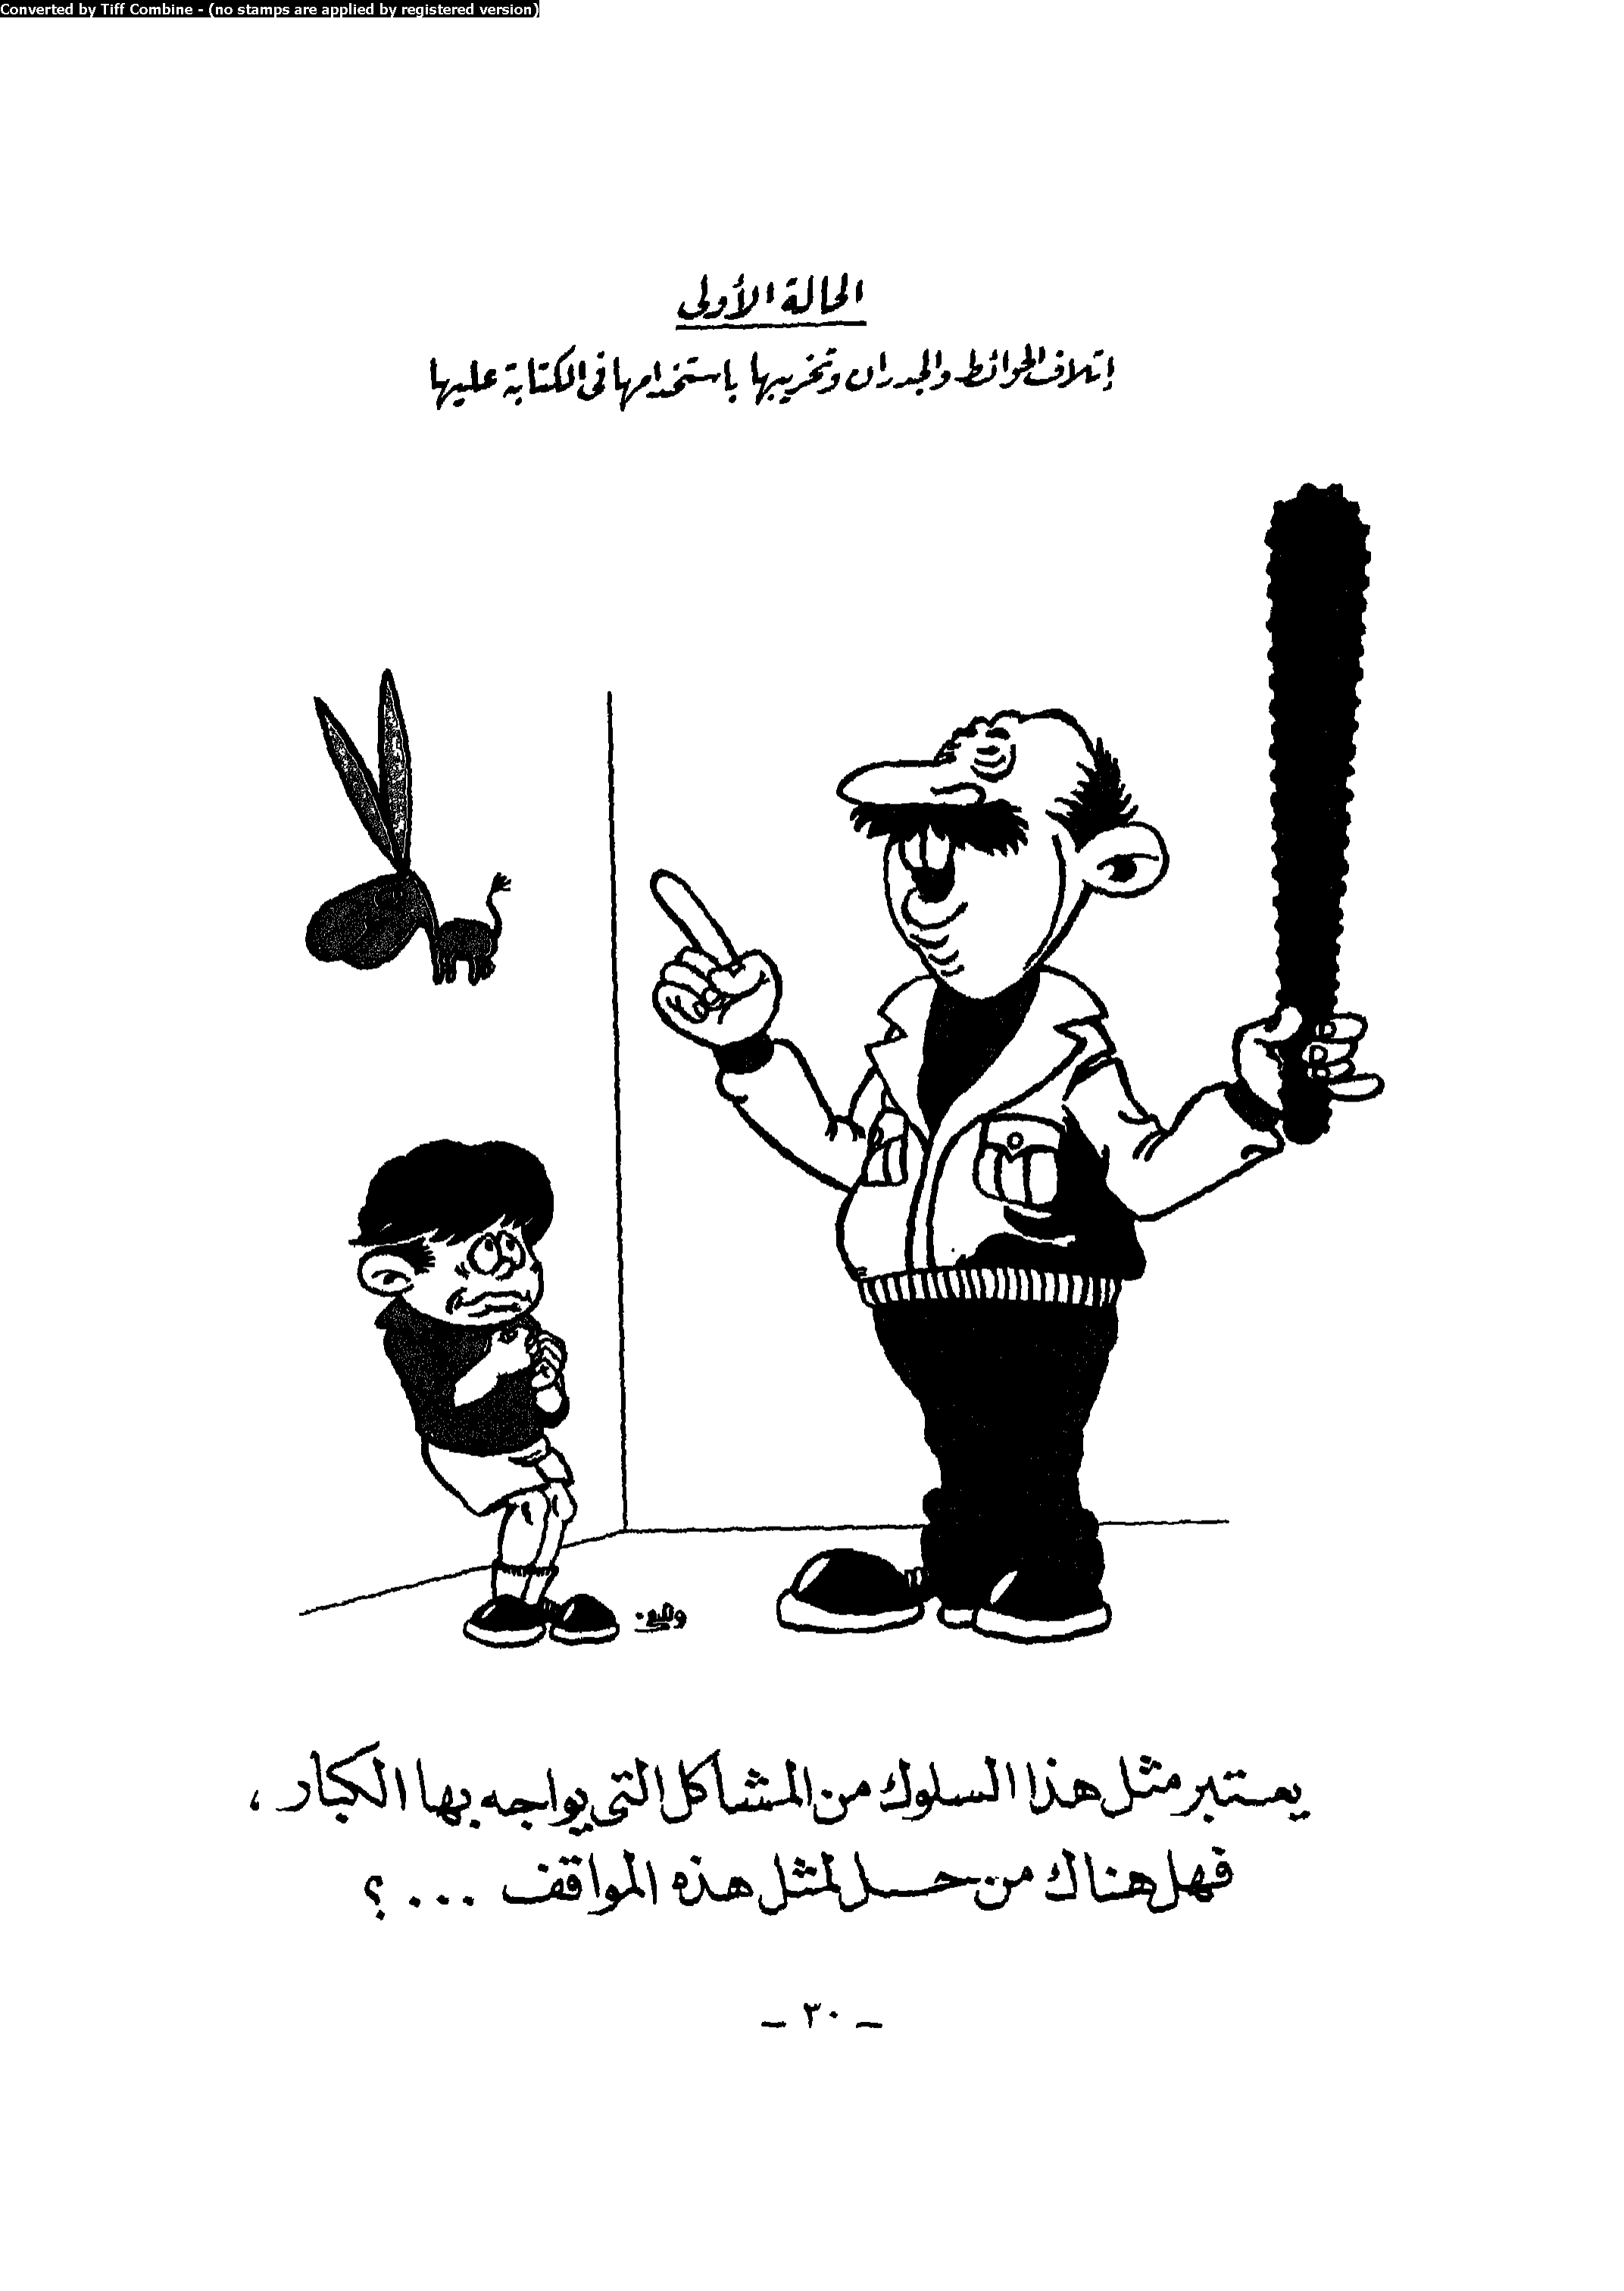 Converted by Tiff Combine - (no stamps are applied by registered version)
الحالة الأولى
إتلاف الحوائط والجدران وتخريبها باستخدامها فى الكتابة عليها
يعتبر مثل هذا السلوك من المشاكل التى يواجه بها الكبار ،
فهل هناك من حل لمثل هذه المواقف ... ؟
– ٣٠ –